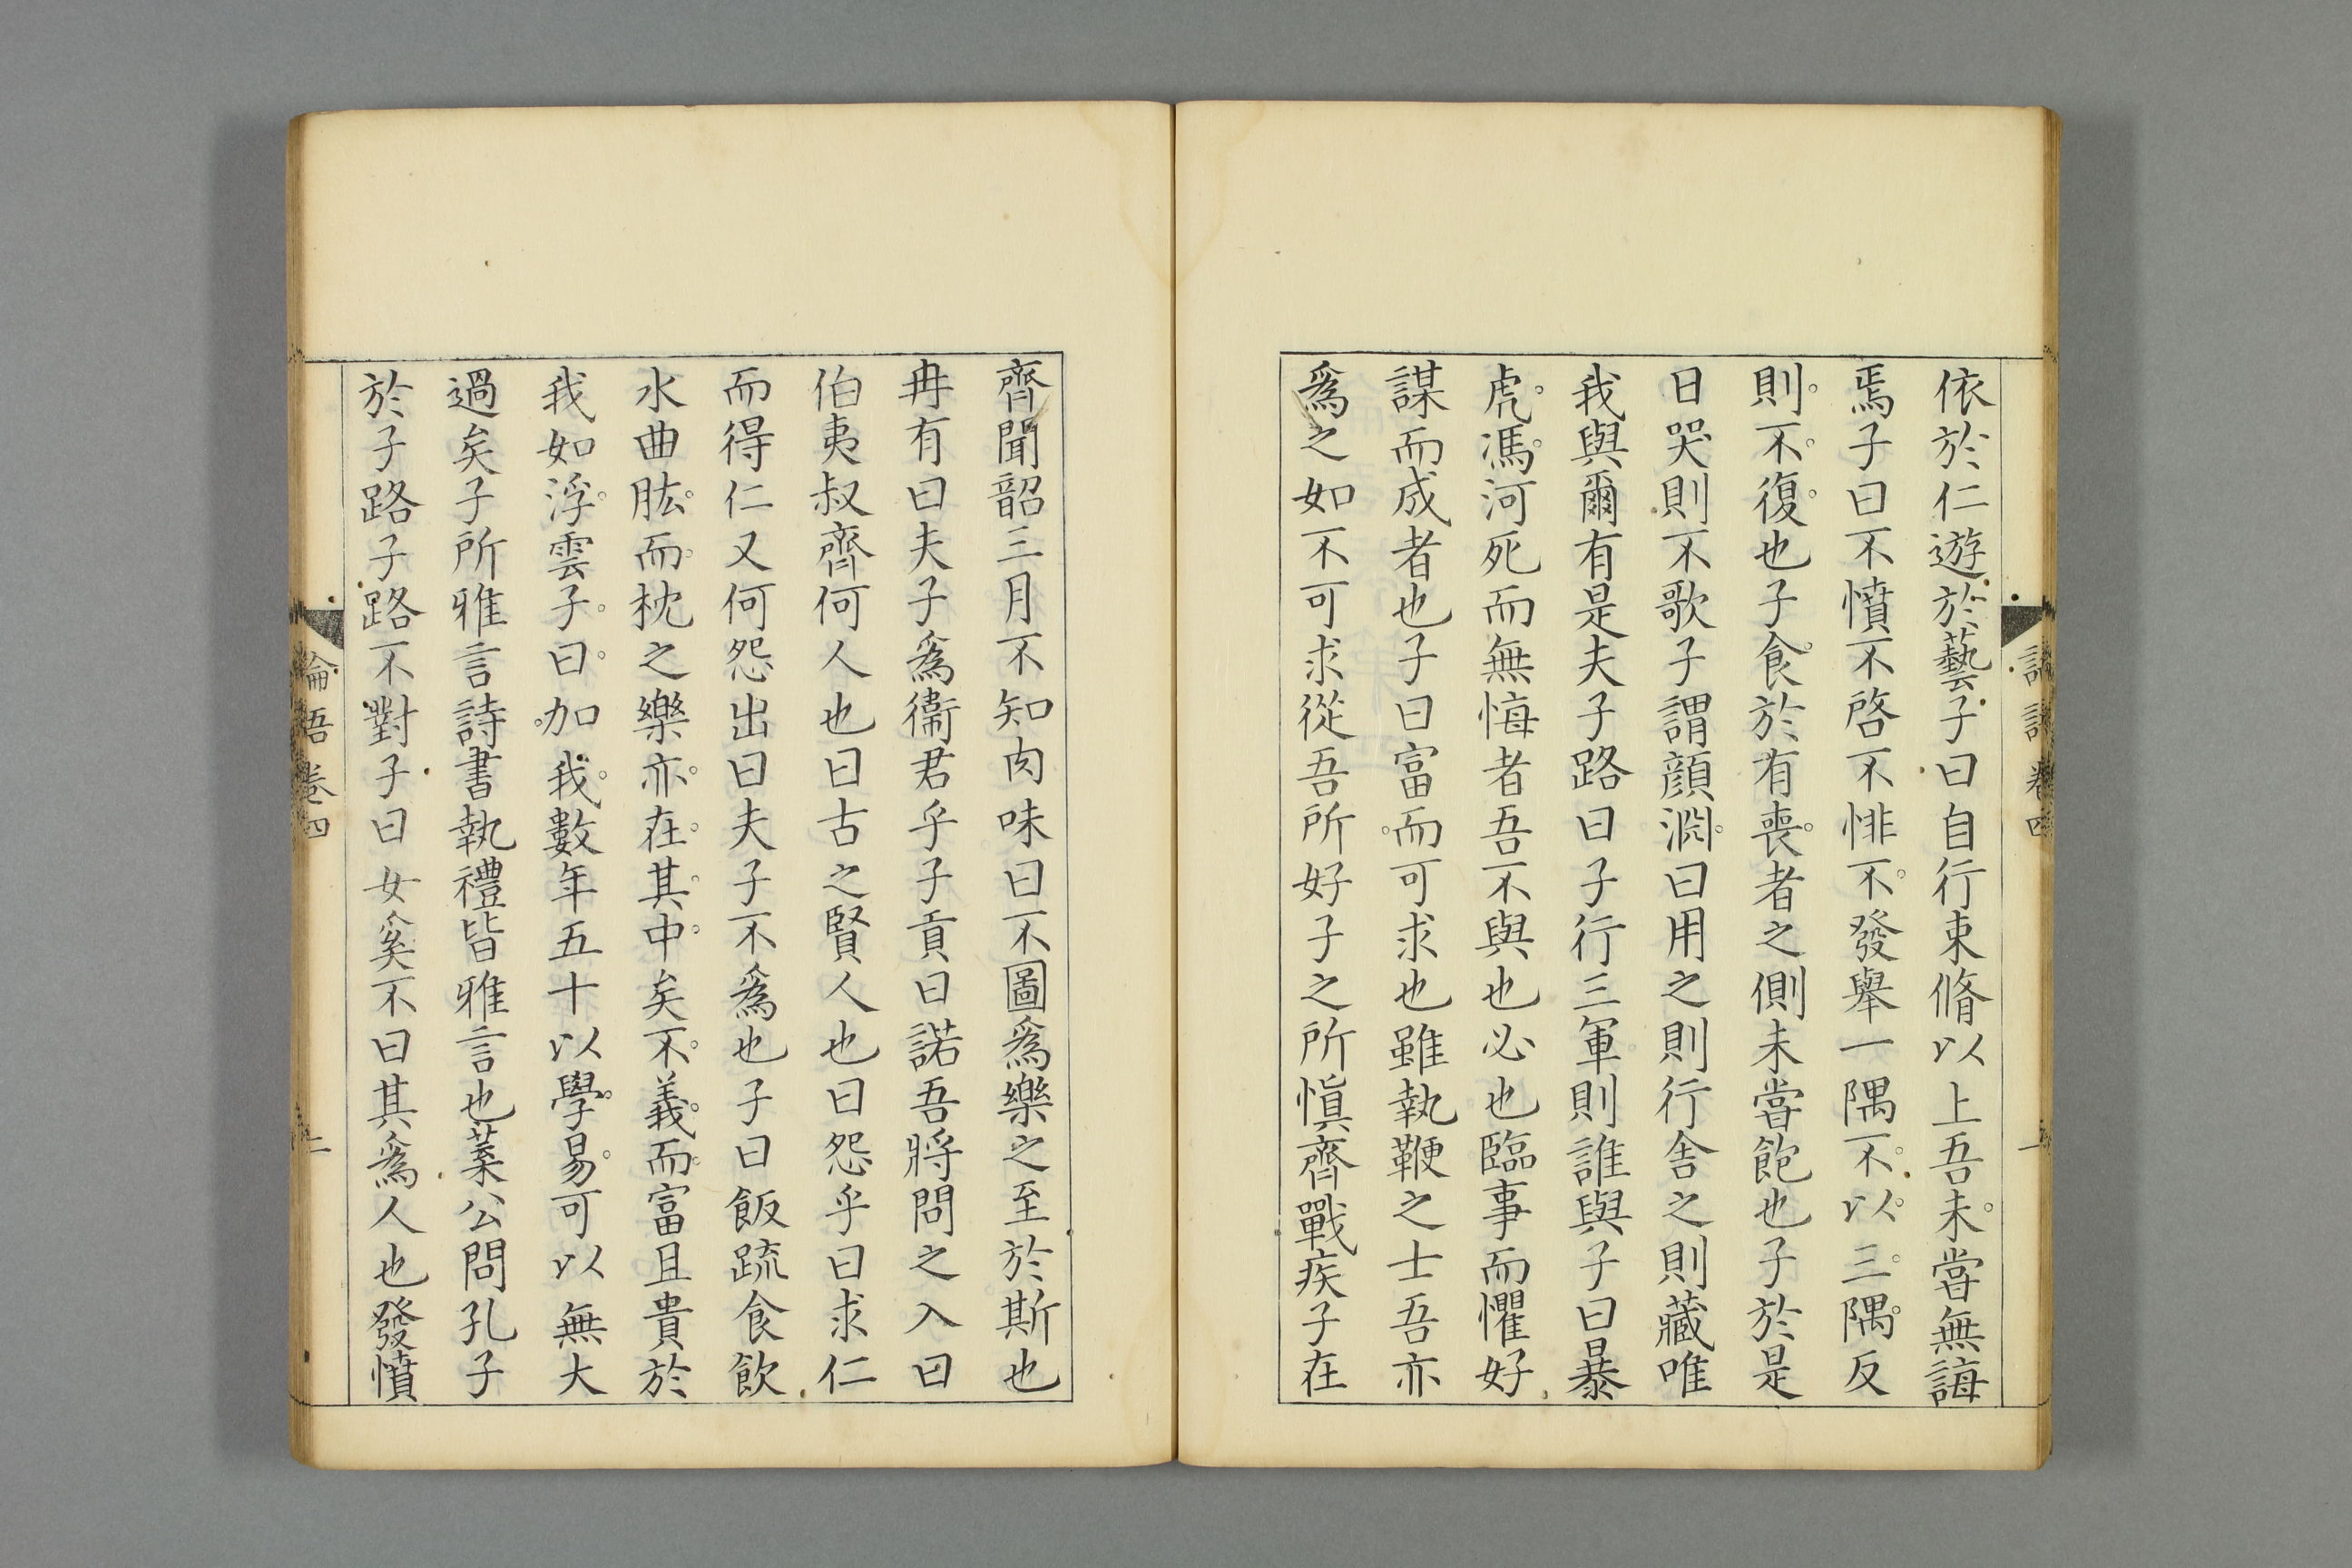 依於仁遊於藝子曰自行束脩以上吾未嘗無誨
焉子曰不憤不啓不悱不發舉一隅不以三隅反
則不復也子食於有喪者之側未嘗飽也子於是
日哭則不歌子謂顔淵曰用之則行舍之則藏唯
我與爾有是夫子路曰子行三軍則誰與子曰暴
虎馮河死而無悔者吾不與也必也臨事而懼好
謀而成者也子曰富而可求也雖執鞭之士吾亦
爲之如不可求從吾所好子之所愼齊戰疾子在
齊聞韶三月不知肉味曰不圖爲樂之至於斯也
冉有曰夫子爲衞君乎子貢曰諾吾將問之入曰
伯夷叔齊何人也曰古之賢人也曰怨乎曰求仁
而得仁又何怨出曰夫子不爲也子曰飯疏食飮
水曲肱而枕之樂亦在其中矣不義而富且貴於
我如浮雲子曰加我數年五十以學易可以無大
過矣子所雅言詩書執禮皆雅言也葉公問孔子
於子路子路不對子曰女奚不曰其爲人也發憤
論語卷四 二